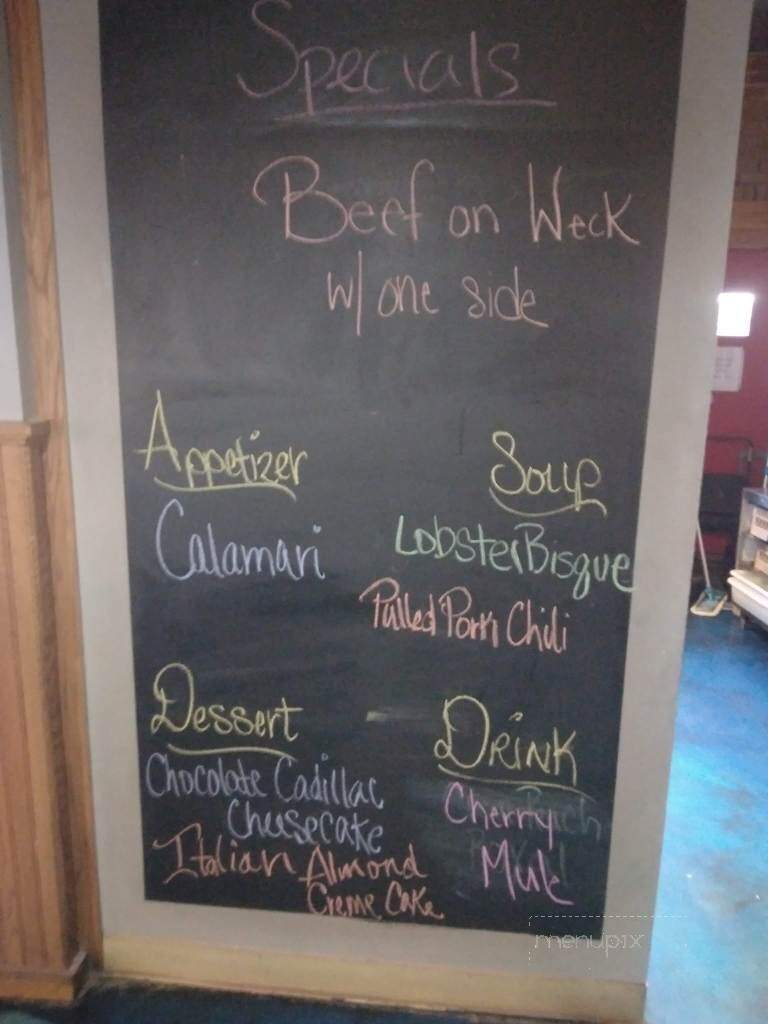 Specials
Beef on Weck
w/ one side
Appetizer
Calamari
Soup
Lobster Bisque
Pulled Pork Chili
Dessert
Chocolate Cadillac
Cheesecake
Italian Almond
Creme Cake
Drink
Cherry
Mule
menupix